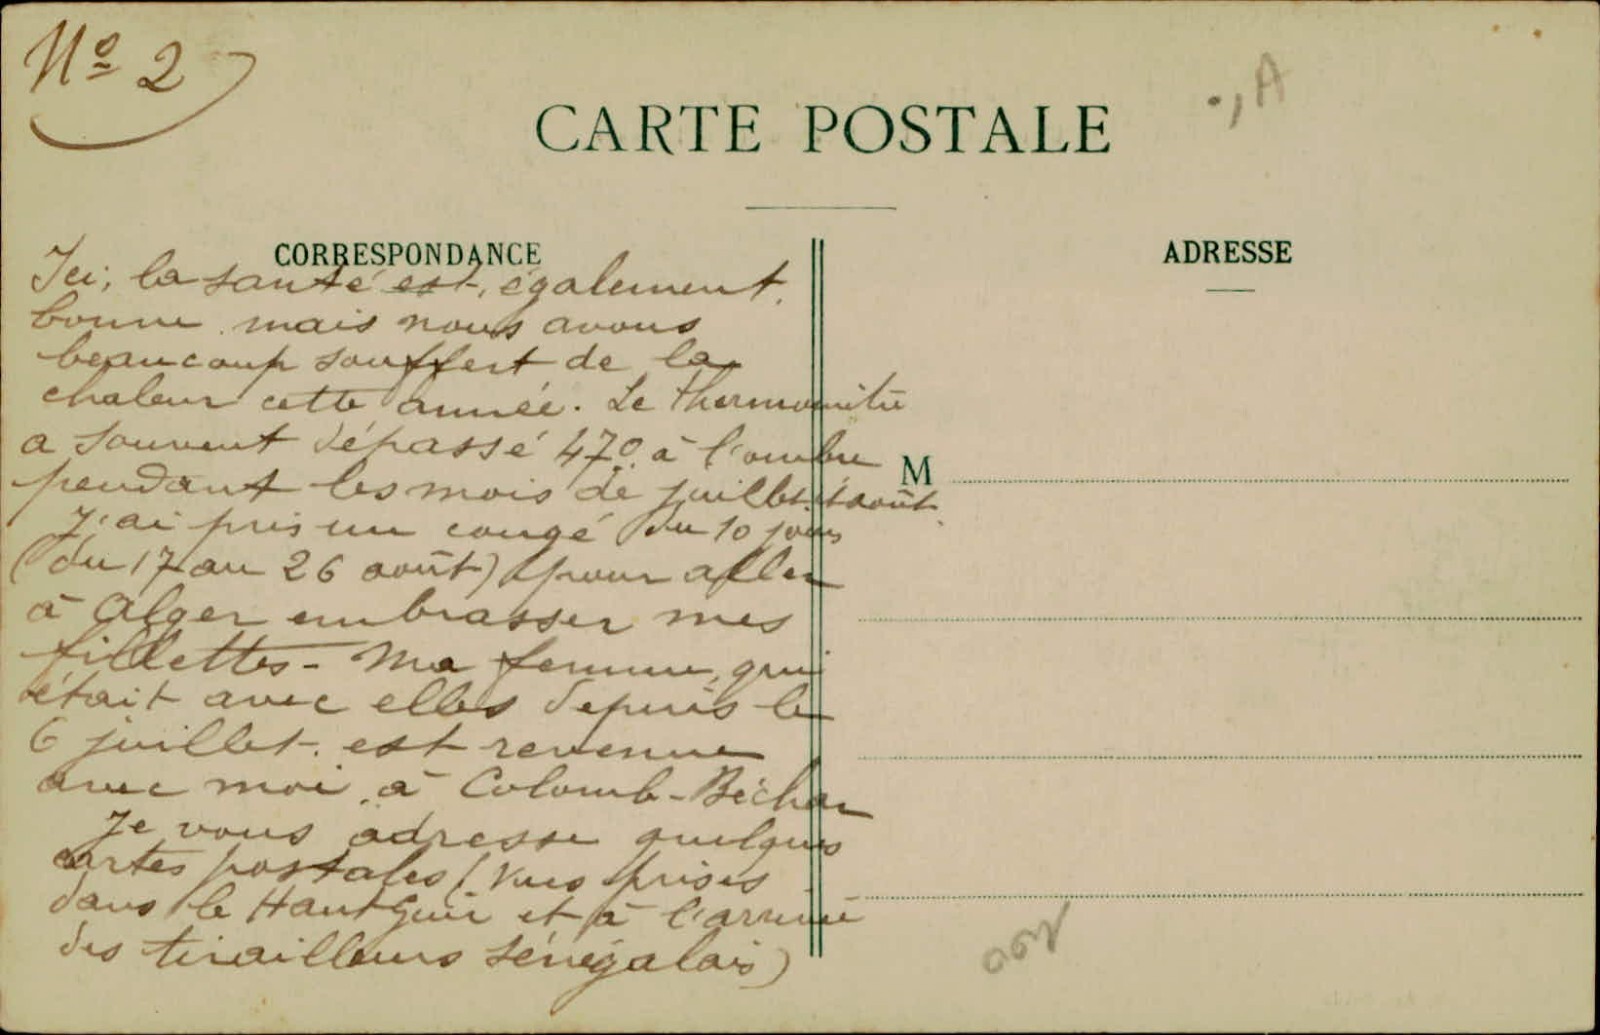 Nº 2
., A
CARTE POSTALE
CORRESPONDANCE
ADRESSE
Ici, la santé est également
bonne mais nous avons
beaucoup souffert de la
chaleur cette année. Le thermomètre
a souvent dépassé 47º à l'ombre
pendant les mois de juillet et août.
J'ai pris un congé de 10 jours
(du 17 au 26 août) pour aller
à Alger embrasser mes
fillettes - Ma femme, qui
était avec elles depuis le
6 juillet, est revenue
avec moi à Colomb-Béchar
Je vous adresse quelques
cartes postales (Vues prises
dans le Haut Guir et à l'arrivée
des tirailleurs sénégalais)
M